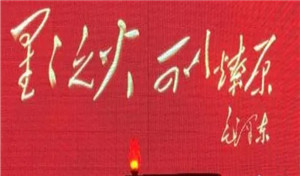 星之火 可以燎原
毛泽东